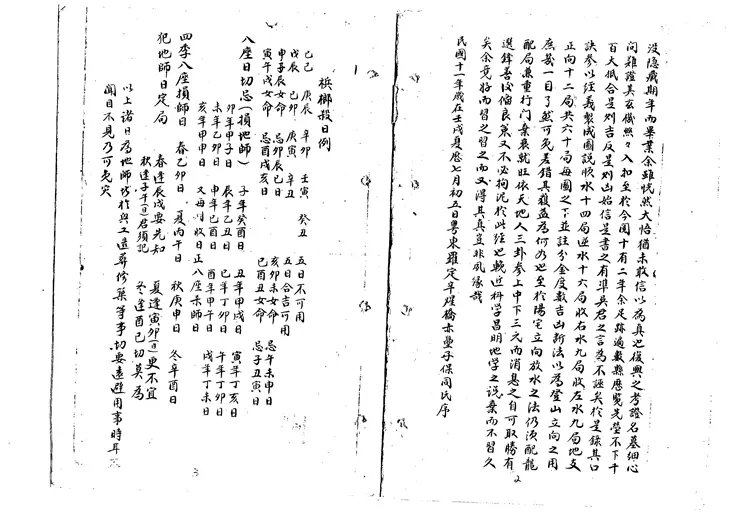 没隐藏期年而畢業余雖恍然大悟猶未敢信以為真也復興之考證名墓細心
問難證其玄儀無々入扣至於今閱十有二年余足跡過數縣歷覽先塋不下千
百大抵合是則吉反是則凶始信是書之有準吳君之言為不誣矣於是錄其口
訣參以經義製成圖說順水十四局逆水十六局收右水九局收左水九局地支
正向十二局共六十局每圖之下並註分金度數吉凶斷法以為登山立向之用
庶幾一目了然可免差錯其獲益為何如也至於陽宅立向放水之法仍須配龍
配局兼重行門乘衰就旺依天地人三卦參上中下三元而消息之自可取勝有
選鋒善後備良策又不必拘泥於此經也輓近科學昌明地學之說棄而不習久
矣余竟好而習之習之而又得其真豈非夙緣哉
民國十一年歲在壬戌夏曆七月初五日粵東羅定
2
檳榔殺日例
己巳 庚辰 辛卯 壬寅 癸丑 五日不可用
戊辰 己卯 庚寅 辛丑 五日合吉可用
申子辰女命 忌卯辰巳日 亥卯未女命 忌午未申日
寅午戌女命 忌酉戌亥日 巳酉丑女命 忌子丑寅日
八座日切忌(損地師) 子年癸酉日 丑年甲戌日 寅年丁亥日
卯年甲子日 辰年乙丑日 巳年丁卯日 午年丁卯日
未年乙卯日 申年己酉日 酉年甲午日 戌年丁未日
亥年甲申日 又每月收日正八座未師日
四季八座損師日 春乙卯日 夏丙午日 秋庚申日 冬辛酉日
犯地師日定局 春逢辰戌要先知 夏逢寅卯(日)更不宜
秋逢子午(日)君須記 冬逢酉巳切莫為
以上諸日為地師皆於興工造葬修築等事切要遠避用事時耳不
聞目不見乃可免灾
3